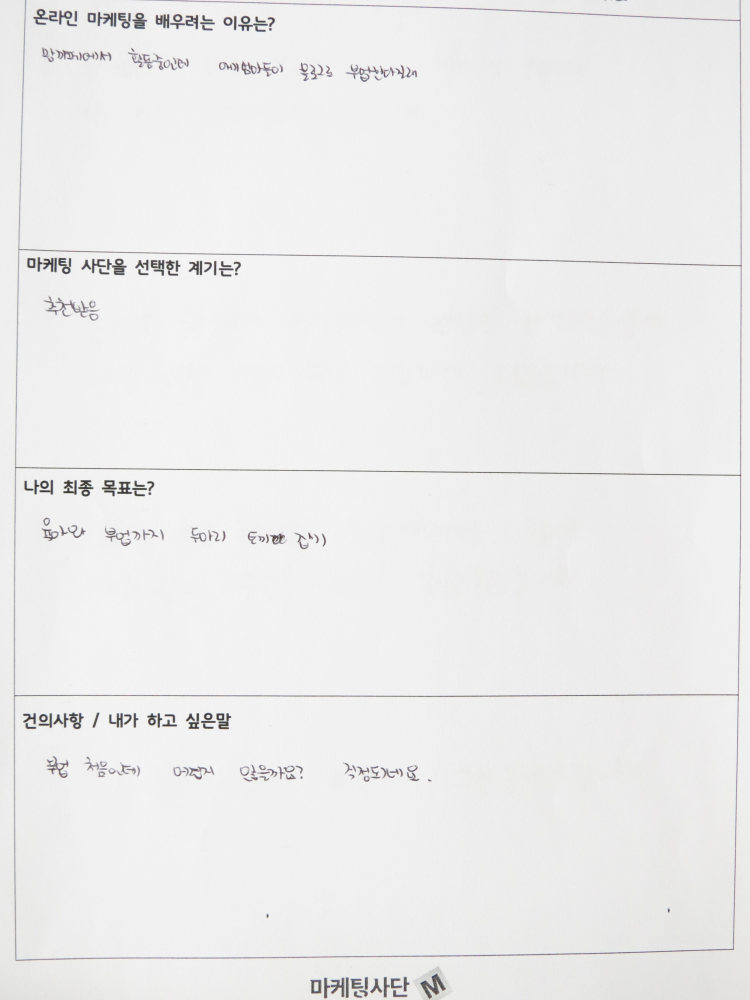 온라인 마케팅을 배우려는 이유는?
맘까페에서 활동중인데 애기엄마들이 블로그로 부업한다길래
마케팅 사단을 선택한 계기는?
추천받음
나의 최종 목표는?
육아와 부업까지 두마리 토끼 잡기
건의사항 / 내가 하고 싶은말
부업 처음인데 어렵지 않을까요? 걱정되네요.
마케팅사단 M